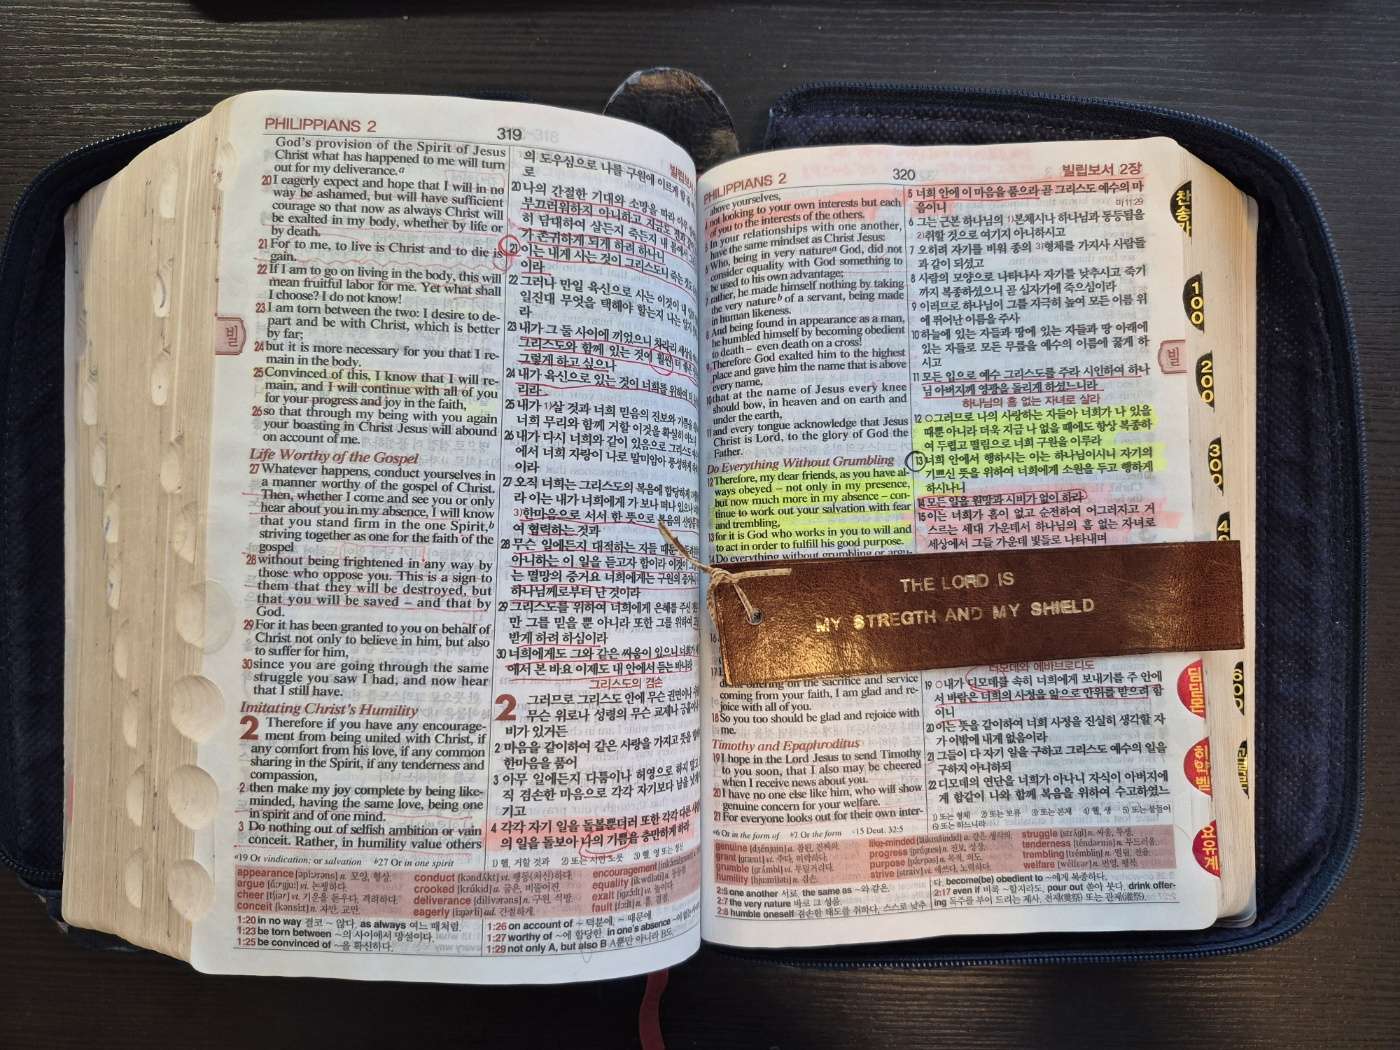 PHILIPPIANS 2
319
God's provision of the Spirit of Jesus
Christ what has happened to me will turn
out for my deliverance.a
20 I eagerly expect and hope that I will in no
way be ashamed, but will have sufficient
courage so that now as always Christ will
be exalted in my body, whether by life or
by death.
21 For to me, to live is Christ and to die is
gain.
22 If I am to go on living in the body, this will
mean fruitful labor for me. Yet what shall
I choose? I do not know!
23 I am torn between the two: I desire to de-
part and be with Christ, which is better
by far;
24 but it is more necessary for you that I re-
main in the body.
25 Convinced of this, I know that I will re-
main, and I will continue with all of you
for your progress and joy in the faith,
26 so that through my being with you again
your boasting in Christ Jesus will abound
on account of me.
Life Worthy of the Gospel
27 Whatever happens, conduct yourselves in
a manner worthy of the gospel of Christ.
Then, whether I come and see you or only
hear about you in my absence, I will know
that you stand firm in the one Spirit,b
striving together as one for the faith of the
gospel
28 without being frightened in any way by
those who oppose you. This is a sign to
them that they will be destroyed, but
that you will be saved – and that by
God.
29 For it has been granted to you on behalf of
Christ not only to believe in him, but also
to suffer for him,
30 since you are going through the same
struggle you saw I had, and now hear
that I still have.
Imitating Christ's Humility
2 Therefore if you have any encourage-
ment from being united with Christ, if
any comfort from his love, if any common
sharing in the Spirit, if any tenderness and
compassion,
2 then make my joy complete by being like-
minded, having the same love, being one
in spirit and of one mind.
3 Do nothing out of selfish ambition or vain
conceit. Rather, in humility value others
a19 Or vindication; or salvation b27 Or in one spirit
빌립보서
의 도우심으로 나를 구원에 이르게 할
로
20 나의 간절한 기대와 소망을 따라
부끄러워하지 아니하고 지금도
히 담대하여 살든지 죽든지 내
가 존귀하게 되게 하려 하나니
21 이는 내게 사는 것이 그리스도니 죽는
이라
22 그러나 만일 육신으로 사는 이것이 내
일진대 무엇을 택해야 할는지 나는
라
23 내가 그 둘 사이에 끼었으니 차라리
그리스도와 함께 있는 것이 훨씬 더
그렇게 하고 싶으나
24 내가 육신으로 있는 것이 너희를 위하여
리라
25 내가 살 것과 너희 믿음의 진보와 기쁨을
너희 무리와 함께 거할 이것을 확실히
26 내가 다시 너희와 같이 있음으로 그리스도
에서 너희 자랑이 나로 말미암아 풍성하게
이라
27 오직 너희는 그리스도의 복음에 합당하게
라 이는 내가 너희에게 가 보나 떠나 있으나
한마음으로 서서 한 뜻으로 복음의 신앙을
여 협력하는 것과
28 무슨 일에든지 대적하는 자들 때문에
아니하는 이 일을 듣고자 함이라 이것이
는 멸망의 증거요 너희에게는 구원의 증거니
하나님께로부터 난 것이라
29 그리스도를 위하여 너희에게 은혜를 주신
만 그를 믿을 뿐 아니라 또한 그를 위하여
받게 하려 하심이라
30 너희에게도 그와 같은 싸움이 있으니 너희가
에서 본 바요 이제도 내 안에서 듣는 바니라
그리스도의 겸손
2 그러므로 그리스도 안에 무슨 권면이나
무슨 위로나 성령의 무슨 교제나 긍휼이나
비가 있거든
2 마음을 같이하여 같은 사랑을 가지고 뜻을
한마음을 품어
3 아무 일에든지 다툼이나 허영으로 하지 말고
직 겸손한 마음으로 각각 자기보다 남을
기고
4 각각 자기 일을 돌볼뿐더러 또한 각각 다른
의 일을 돌보아 나의 기쁨을 충만하게 하라
appearance n. 모양, 형상.
argue v. 논쟁하다.
cheer v. 기운을 돋우다, 격려하다.
conceit n. 자만, 교만.
conduct v. 행동(처신)하다.
crooked a. 굽은, 비뚤어진.
deliverance n. 구원, 석방.
eagerly ad. 간절하게.
encouragement
equality
exalt
fault
1:20 in no way 결코 ~ 않다. as always 여느 때처럼.
1:23 be torn between ~의 사이에서 망설이다.
1:25 be convinced of ~을 확신하다.
1:26 on account of ~ 덕분에, ~ 때문에
1:27 worthy of ~에 합당한. in one's absence
1:29 not only A, but also B A뿐만 아니라 B도
빌
PHILIPPIANS 2
320
빌립보서 2장
above yourselves,
4 not looking to your own interests but each
of you to the interests of the others.
5 In your relationships with one another,
have the same mindset as Christ Jesus:
6 Who, being in very nature a God, did not
consider equality with God something to
be used to his own advantage;
7 rather, he made himself nothing by taking
the very nature b of a servant, being made
in human likeness.
8 And being found in appearance as a man,
he humbled himself by becoming obedient
to death – even death on a cross!
9 Therefore God exalted him to the highest
place and gave him the name that is above
every name,
10 that at the name of Jesus every knee
should bow, in heaven and on earth and
under the earth,
11 and every tongue acknowledge that Jesus
Christ is Lord, to the glory of God the
Father.
Do Everything Without Grumbling
12 Therefore, my dear friends, as you have al-
ways obeyed – not only in my presence,
but now much more in my absence – con-
tinue to work out your salvation with fear
and trembling,
13 for it is God who works in you to will and
to act in order to fulfill his good purpose.
14 Do everything without grumbling or argu-
THE LORD IS
MY STREGTH AND MY SHIELD
offering on the sacrifice and service
coming from your faith, I am glad and re-
joice with all of you.
18 So you too should be glad and rejoice with
me.
Timothy and Epaphroditus
19 I hope in the Lord Jesus to send Timothy
to you soon, that I also may be cheered
when I receive news about you.
20 I have no one else like him, who will show
genuine concern for your welfare.
21 For everyone looks out for their own inter-
a6 Or in the form of b7 Or the form c15 Deut. 32:5
5 너희 안에 이 마음을 품으라 곧 그리스도 예수의 마
음이니
마11:29
6 그는 근본 하나님의 본체시나 하나님과 동등됨을
취할 것으로 여기지 아니하시고
7 오히려 자기를 비워 종의 형체를 가지사 사람들
과 같이 되셨고
8 사람의 모양으로 나타나사 자기를 낮추시고 죽기
까지 복종하셨으니 곧 십자가에 죽으심이라
9 이러므로 하나님이 그를 지극히 높여 모든 이름 위
에 뛰어난 이름을 주사
10 하늘에 있는 자들과 땅에 있는 자들과 땅 아래에
있는 자들로 모든 무릎을 예수의 이름에 꿇게 하
시고
11 모든 입으로 예수 그리스도를 주라 시인하여 하나
님 아버지께 영광을 돌리게 하셨느니라
하나님의 흠 없는 자녀로 살라
12 ○그러므로 나의 사랑하는 자들아 너희가 나 있을
때뿐 아니라 더욱 지금 나 없을 때에도 항상 복종하
여 두렵고 떨림으로 너희 구원을 이루라
13 너희 안에서 행하시는 이는 하나님이시니 자기의
기쁘신 뜻을 위하여 너희에게 소원을 두고 행하게
하시나니
14 모든 일을 원망과 시비가 없이 하라
15 이는 너희가 흠이 없고 순전하여 어그러지고 거
스르는 세대 가운데서 하나님의 흠 없는 자녀로
세상에서 그들 가운데 빛들로 나타내며
디모데와 에바브로디도
19 ○내가 디모데를 속히 너희에게 보내기를 주 안에
서 바람은 너희의 사정을 앎으로 안위를 받으려 함
이니
20 이는 뜻을 같이하여 너희 사정을 진실히 생각할 자
가 이밖에 내게 없음이라
21 그들이 다 자기 일을 구하고 그리스도 예수의 일을
구하지 아니하되
22 디모데의 연단을 너희가 아나니 자식이 아버지에
게 함같이 나와 함께 복음을 위하여 수고하였느
genuine a. 참된, 진짜의.
grant v. 주다, 허락하다.
grumble
humility n. 겸손.
like-minded a. 같은 생각의.
progress n. 진보, 성장.
purpose n. 목적, 의도.
strive v. 애쓰다, 노력하다.
struggle n. 싸움, 투쟁.
tenderness n. 부드러움.
trembling n. 떨림, 전율.
welfare n. 번영, 행복.
2:5 one another 서로 the same as ~와 같은.
2:7 the very nature 바로 그 성품.
2:8 humble oneself 겸손한 태도를 취하다, 스스로 낮추
다. become(be) obedient to ~에게 복종하다.
2:17 even if 비록 ~할지라도, pour out 쏟아 붓다. drink offer-
ing
빌
찬송가
100
200
300
40
600
딤딤몬
히약벧
요유계